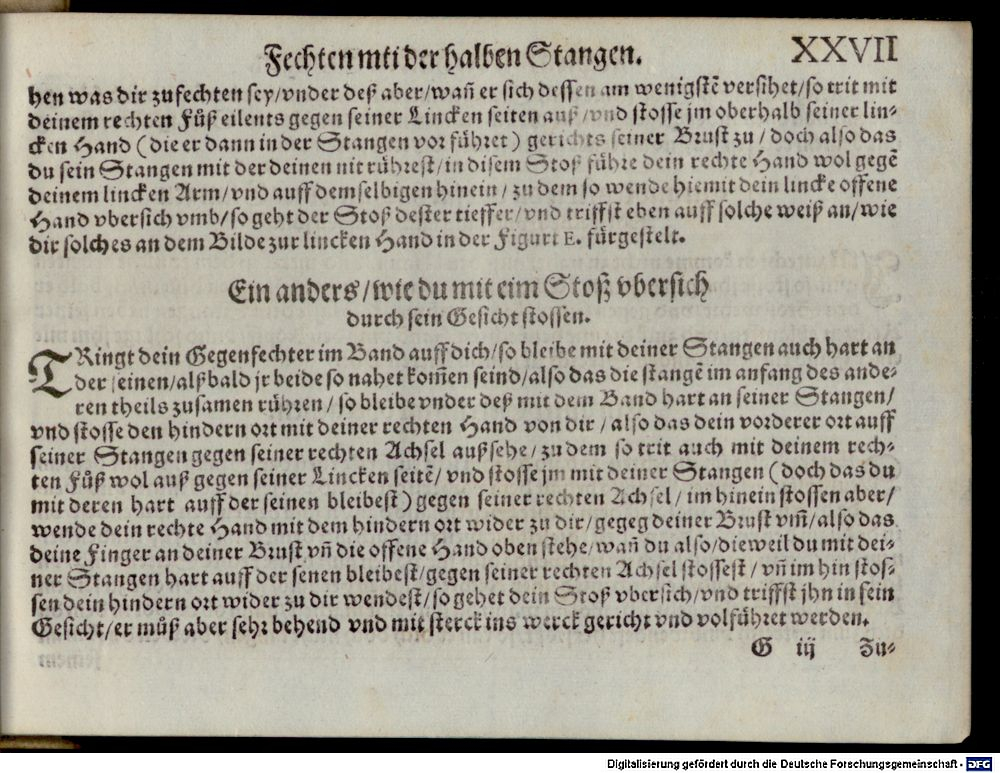 Fechten mti der halben Stangen.
XXVII
hen was dir zufechten sey/vnder deß aber/wañ er sich dessen am wenigstẽ versihet/so trit mit
deinem rechten Fůß eilents gegen seiner Lincken seiten auß/vnd stosse jm oberhalb seiner lin-
cken Hand (die er dann in der Stangen vor führet) gerichts seiner Brust zu/doch also das
du sein Stangen mit der deinen nit rührest/in disem Stoß führe dein rechte Hand wol gegẽ
deinem lincken Arm/vnd auff demselbigen hinein/zu dem so wende hiemit dein lincke offene
Hand vbersich vmb/so geht der Stoß dester tieffer/vnd triffst eben auff solche weiß an/wie
dir solches an dem Bilde zur lincken Hand in der Figurt E. fürgestelt.
Ein anders/wie du mit eim Stoß vbersich
durch sein Gesicht stossen.
TRingt dein Gegenfechter im Band auff dich/so bleibe mit deiner Stangen auch hart an
der seinen/alßbald jr beide so nahet kom̃en seind/also das die stangẽ im anfang des ande-
ren theils zusamen rühren/so bleibe vnder deß mit dem Band hart an seiner Stangen/
vnd stosse den hindern ort mit deiner rechten Hand von dir/also das dein vorderer ort auff
seiner Stangen gegen seiner rechten Achsel außsehe/zu dem so trit auch mit deinem rech-
ten Fůß wol auß gegen seiner Lincken seitẽ/vnd stosse jm mit deiner Stangen (doch das du
mit deren hart auff der seinen bleibest) gegen seiner rechten Achsel/im hinein stossen aber/
wende dein rechte Hand mit dem hindern ort wider zu dir/gegeg deiner Brust vm̃/also das
deine Finger an deiner Brust vñ die offene Hand oben stehe/wañ du also/dieweil du mit dei-
ner Stangen hart auff der senen bleibest/gegen seiner rechten Achsel stossest/vñ im hin stos-
sen dein hindern ort wider zu dir wendest/so gehet dein Stoß vbersich/vnd triffst jhn in sein
Gesicht/er můß aber sehr behend vnd mit sterck ins werck gericht vnd volführet werden.
G iij Zu-
Digitalisierung gefördert durch die Deutsche Forschungsgemeinschaft - DFG